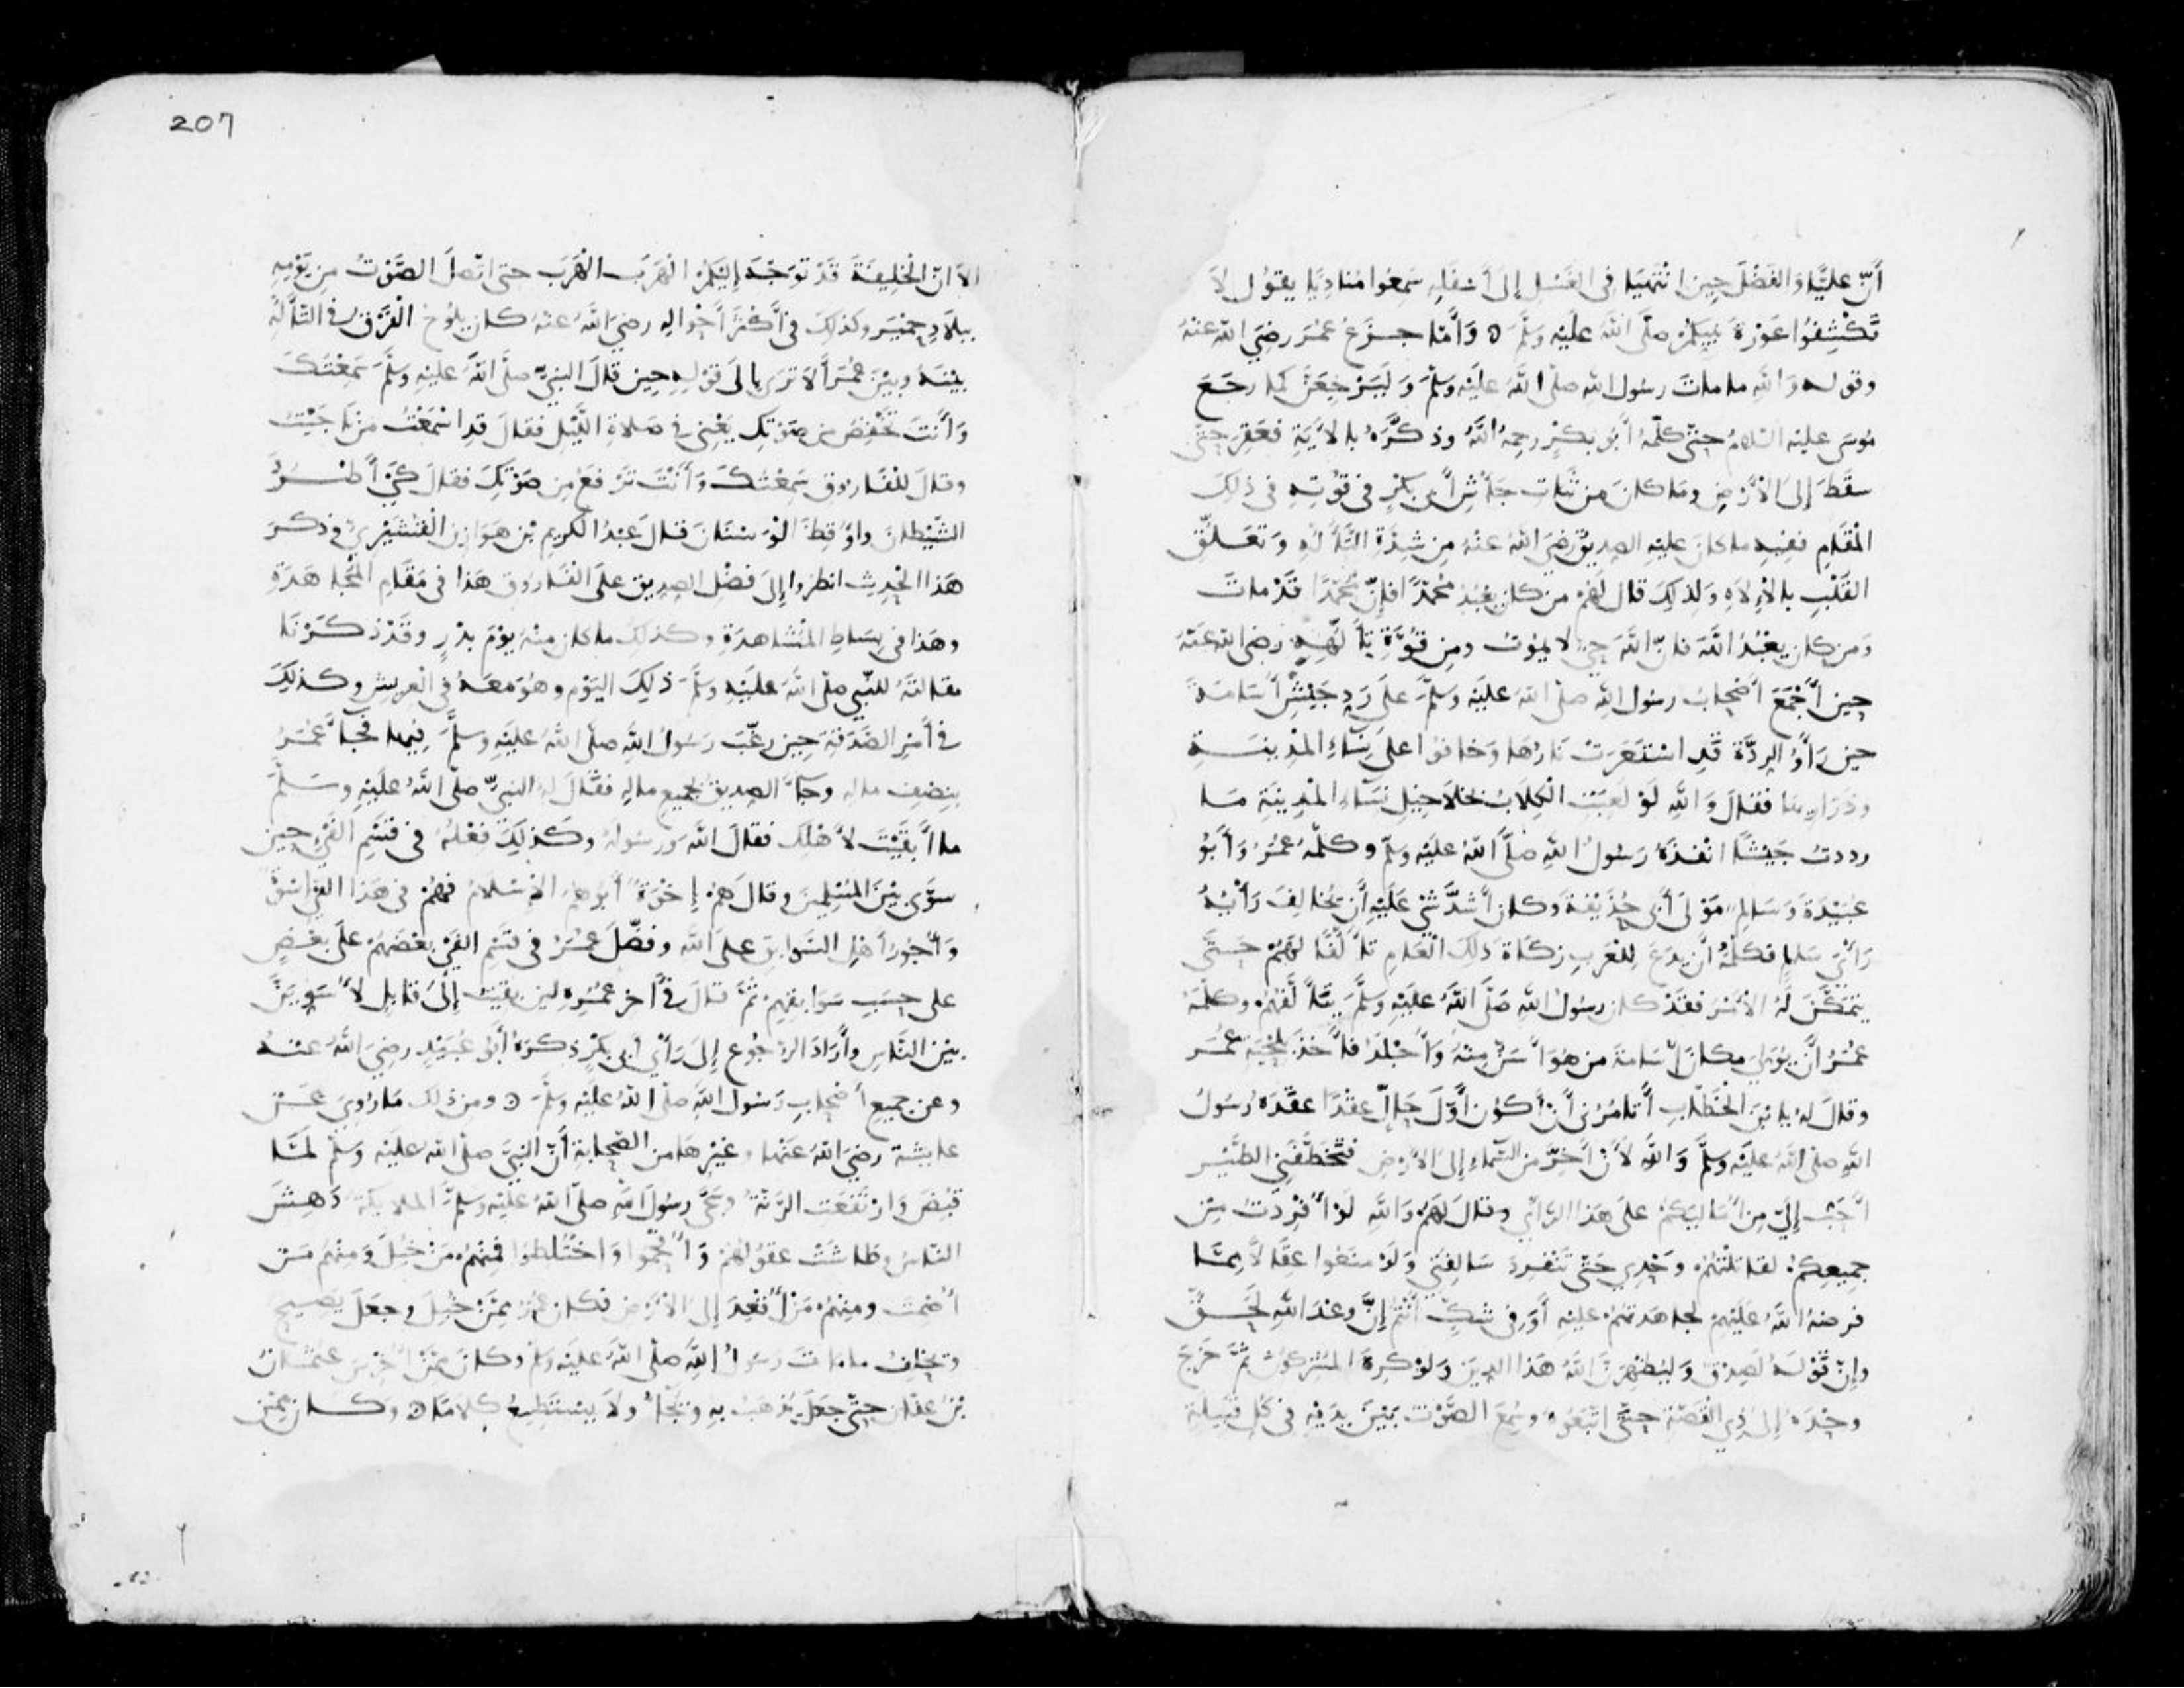 أَنَّ عَلِيًّا وَالفَضْلَ حِينَ انْتَهَيَا فِي الغَسْلِ إِلى أَسْفَلِهِ سَمِعُوا مُنادِيًا يقُولُ لاَ
تَكْشِفُوا عَوْرَةَ نَبِيِّكُمْ صلَّى اللهُ عَلَيْهِ وَسَلَّمَ ٥ وَأَمَّا جزَعُ عُمَرَ رضِيَ اللهُ عنهُ
وقوله وَاللهِ ما ماتَ رسُولُ اللهِ صلّى اللهُ علَيْهِ وسَلَّمَ وَلَيَرْجِعَنَّ كما رجَعَ
مُوسَى عليْهِ السّلامُ حتّى كلّمهُ أَبُو بكْرٍ رحِمهُ اللهُ وذكَّرَهُ بالآيَةِ فعَقِرَ حتَّى
سقَطَ إِلى الأَرْضِ ومَا كانَ مِن ثَبَاتِ جَأْشِ أَبي بكْرٍ في قُوّتِهِ في ذلِكَ
الْمَقَامِ ففِيهِ ما كانَ عليْهِ الصِدِيقُ رضِيَ اللهُ عنْهُ مِن شِدَّةِ التَّأَلُّهِ وَتعَلُّقِ
القَلْبِ بالإِلاَهِ وَلِذلِكَ قال لَهُمْ من كان يعْبُدُ مُحَمَّدًا فإِنَّ مُحَمَّدًا قَدْ ماتَ
وَمن كان يعْبُدُ اللهَ فانّ اللهَ حيٌّ لا يمُوتُ ومِن قُوَّةِ تَأَلُّهِهِ رضي الله عَنهُ
حِينَ أَجْمَعَ أَصْحابُ رسُولِ اللهِ صلّى اللهُ علَيْهِ وسَلَّمَ علَى رَدِ جَيْشِ أُسَامَةَ
حين رَأَوُا الرِدَّةَ قَدِ اسْتَعَرَتْ نَارُهَا وَخافوُا علَى نِسَاءِ المَدِينَةِ
وذَرَارِيهَا فقالَ وَاللهِ لَوْ لَعِبَتِ الْكِلاَبُ بخَلاَخِيلِ نِسَاءِ المَدِينَةِ مَا
رددتُ جَيْشًا انْفذَهُ رَسُولُ اللهِ صلَّى اللهُ علَيْهِ وسَلّمَ وكلّمَهُ عُمَرُ وَأَبُو
عُبَيْدَةَ وَسَالِمٌ مَوْلَى أَبي حُذَيْفَةَ وكان أَشَدَّ شَيْءٍ عَلَيْهِ أَن يُخَالِفَ رَأْيُهُ
رَأْيَ سَالِمٍ فكلّمُوهُ أَن يدَعَ لِلعَرَبِ زكَاةَ ذَلِكَ الْعَامِ تأَلُّفًا لَهُمْ حَتَّى
يتمَكَّنَ لَهُ الأَمْرُ فقَدْ كان رسُولُ اللهِ صَلَّى اللهُ علَيْهِ وسَلَّمَ يتَأَلَّفُهُمْ وكلَّمَهُ
عُمَرُ أَن يُوَلِيَ مكانَ أُسَامَةَ من هُوَ أَسَنُّ مِنْهُ وَأَجْلَدُ فأَخذَ بلِحْيَةِ عُمَرَ
وقالَ لهُ يا بْنَ الخَطَّابِ أَتأمُرُنِي أَنْ أَكُونَ أَوّلَ حَالٍّ عقْدًا عقَدَهُ رَسُولُ
اللهِ صلّى اللهُ علَيْهِ وسَلَّمَ وَاللهِ لأَنْ أَخِرَّ مِنَ السّماءِ إِلى الأَرْضِ فتَخْطَفَنِي الطّيْر
أَحَبُّ إِليَّ مِن أَن أُمَالِيَكمْ علَى هَذا الرَّأْيِ وقالَ لَهُمْ وَاللهِ لَوْ أُفْرِدتُ مِن
جمِيعِكُمْ لقاتلْتُهُمْ وَحْدِي حَتَّى تنْفَرِدَ سَالِفَتِي وَلَوْ منَعُوا عِقَالاً مِمَّا
فرضهُ اللهُ عَلَيْهِمْ لجاهَدتهُمْ علَيْهِ أَوَ فى شكٍّ أَنْتُمْ إِنَّ وعْدَ اللهِ لَحَقٌّ
وإِنّ قوْلَهُ لصِدْقٌ وَليُظْهِرَنَّ اللهُ هَذا الدِينَ وَلوْ كرِهَ المُشْرِكُونَ ثمَّ خَرَجَ
وحْدَهُ إِلى ذِي القَصَّةِ حتَّى اتّبَعُوهُ وسُمِعَ الصَّوْت بَيْنَ يدَيْهِ فى كُلِّ قبِيلةٍ
207
الاَ انّ الْخَلِيفَةَ قَدْ توَجَّهَ إِليْكُمْ الْهَرَبَ الْهَرَبَ حتى اتّصلَ الصَّوْتُ مِن يَوْمِهِ
ببلاَدِ حِمْيَر وكَذلِكَ في أَكْثَرِ أَحْوالِهِ رضِيَ اللهُ عنْهُ كان يلُوحُ الْفَرْقُ في التَّأَلُّهِ
بيْنَهُ وبيْنَ عُمَرَ أَلاَ تَرَى إِلَى قَوْلِهِ حِين قالَ النبيُّ صلَّى اللهُ علَيْهِ وسَلَّمَ سَمِعْتُكَ
وَأَنتَ تَخْفِضُ من صَوْتِكَ يَعْنِي في صَلاةِ اللَّيْلِ فقالَ قد اسْمَعْتُ مَن نَاجَيْتُ
وقالَ للْفَاروق سَمِعْتُكَ وَأَنْتَ ترْفَعُ مِن صَوْتِكَ فقالَ كَيْ أَطْرُدَ
الشَّيْطانَ وأُوقِظَ الْوَسْنَانَ قالَ عَبْدُ الكريم بْن هَوَازِن القُشَيْرِيّ وذكرَ
هَذا الْحَدِيثَ انظرُوا إِلَى فضْلِ الصِدِيقِ علَى الفَارُوقِ هَذا في مَقَامِ المُجاهَدَةِ
وهَذا في بِسَاطِ المُشَاهدَةِ وكَذلِكَ ما كان منْهُ يوْمَ بدْرٍ وقَدْ ذكَرْنَا
مقالتَهُ للنّبِي صلّى اللهُ علَيْهِ وسَلَّمَ ذلِكَ اليَوْم وهُوَ معَهُ في العَرِيشِ وكذلِكَ
في أَمْرِ الصَّدَقةِ حِين رغّبَ رَسُولُ اللهِ صلّى اللهُ علَيْهِ وسَلَّمَ فِيها فجَاءَ عُمَرُ
بنِصْفِ مالِهِ وجَاءَ الصِدِيقُ بجَمِيعِ مالِهِ فقَالَ لهُ النبيُّ صلّى اللهُ علَيْهِ وسَلّمَ
ما أَبقَيْتَ لأَهْلِكَ فقالَ اللهَ ورسُولَهُ وكَذلِكَ فعْلُهُ في قسْمِ الفَيْءِ حِينَ
سوَّى بيْنَ المُسْلِمِينَ وقالَ هُمْ إِخْوَةٌ أَبُوهُمُ الإِسْلامُ فهُمْ في هَذا الفَيْءِ أُسْوَةٌ
وَأُجُورُ أَهْلِ السَّوَابِقِ علَى اللهِ وفضّلَ عُمَرُ في قسْمِ الفَيْءِ بعْضَهُمْ علَى بعْضٍ
على حسَبِ سَوَابِقِهِمْ ثمَّ قالَ في آخِرِ عُمُرِهِ لئِن بقِيتُ إِلَى قابِلٍ لأُسَوِّيَنَّ
بيْنَ النَّاسِ وأَرَادَ الرُّجُوعَ إِلَى رَأْيِ أبي بكْرٍ ذكَرَهُ أَبُو عُبَيْدٍ رضِيَ اللهُ عنهُ
وعن جمِيعِ أَصْحابِ رَسُولِ اللهِ صلّى اللهُ علَيْهِ وسَلَّمَ ٥ ومن ذلك مَا رُوِيَ عَنْ
عايشةَ رضِيَ اللهُ عَنْها وغيْرِهَا من الصّحابةِ أَنّ النبيَّ صلّى الله علَيْهِ وسَلّمَ لمَّا
قبُضَ وَارْتفَعَتِ الرَّنّةُ وسجَّى رسُولَ اللهِ صلّى اللهُ علَيْهِ وسَلَّمَ الملائكةُ دَهِشَ
النّاسُ وطاشَتْ عقُولُهُمْ وَأُفْحِمُوا وَاخْتَلَطُوا فمِنْهُمْ مَن خُبِلَ وَمِنْهُم مَن
أُصْمِتَ ومِنهُمْ مَنْ أُقْعِدَ إِلى الأَرْضِ فكان عُمَرُ مِمَّنْ خُبِلَ وجعَلَ يصِيحُ
ويحْلِفُ ما ماتَ رَسُولُ اللهِ صلّى اللهُ علَيْهِ وسَلَّمَ وكانَ مِمَّنْ أُخْرِسَ عثْمَانُ
بنُ عفّان حتّى جعَلَ يُذْهَبُ بهِ ويُجَاءُ ولاَ يسْتَطِيعُ كلامًا ٥ وكانَ مِمّن